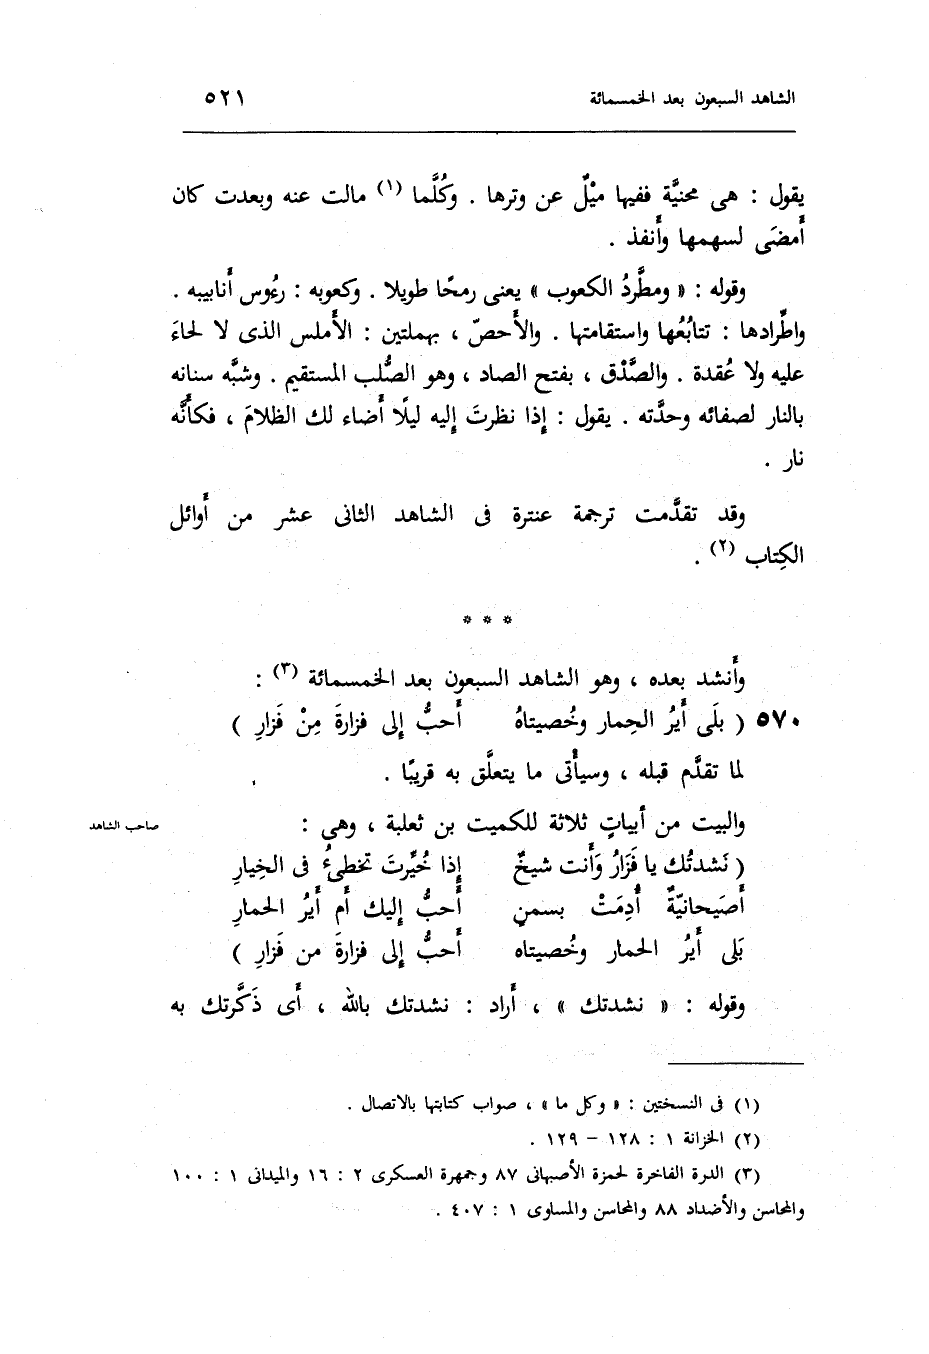 الشاهد السبعون بعد الخمسمائة ٥٢١
يقول : هى محنيَّة ففيها ميْلٌ عن وترها . وكُلَّما (١) مالت عنه وبعدت كان
أَمضَى لسهمها وأَنفذ .
وقوله : « ومطَّردُ الكعوب » يعنى رمحًا طويلا . وكعوبه : رءُوس أَنابيبه .
واطِّرادها : تتابُعُها واستقامتها . والأَحصّ ، بهملتين : الأَملس الذى لا لحاءَ
عليه ولا عُقدة . والصَّدْق ، بفتح الصاد ، وهو الصُّلب المستقيم . وشبَّه سنانه
بالنار لصفائه وحدَّته . يقول : إِذا نظرتَ إِليه ليلًا أَضاء لك الظلامَ ، فكأَنَّه
نار .
وقد تقدَّمت ترجمة عنترة فى الشاهد الثانى عشر من أَوائل
الكِتاب (٢) .
* * *
وأَنشد بعده ، وهو الشاهد السبعون بعد الخمسمائة (٣) :
٥٧٠ ( بلَى أَيرُ الحِمار وخُصيتاهُ أَحبُّ إِلى فزارةَ مِنْ فَزارِ )
لما تقدَّم قبله ، وسيأْتى ما يتعلَّق به قريبًا .
والبيت من أَبياتٍ ثلاثة للكميت بن ثعلبة ، وهي :
صاحب الشاهد
( نَشدتُك يا فَزَارُ وَأَنت شيخٌ إِذا خُيِّرتَ تخطىءُ فى الخِيارِ
أَصَيحانيّةٌ أُدِمَتْ بسمنٍ أَحبُّ إِليك أَم أَيرُ الحمارِ
بَلى أَيرُ الحمار وخُصيتاه أَحبُّ إِلى فزارةَ من فَزارِ )
وقوله : « نشدتك » ، أَراد : نشدتك بالله ، أَى ذَكَّرتك به
(١) فى النسختين : « وكل ما » ، صواب كتابتها بالاتصال .
(٢) الخزانة ١ : ١٢٨ – ١٢٩ .
(٣) الدرة الفاخرة لحمزة الأصبهانى ٨٧ وجمهرة العسكرى ٢ : ١٦ والميدانى ١ : ١٠٠
والمحاسن والأضداد ٨٨ والمحاسن والمساوى ١ : ٤٠٧ .